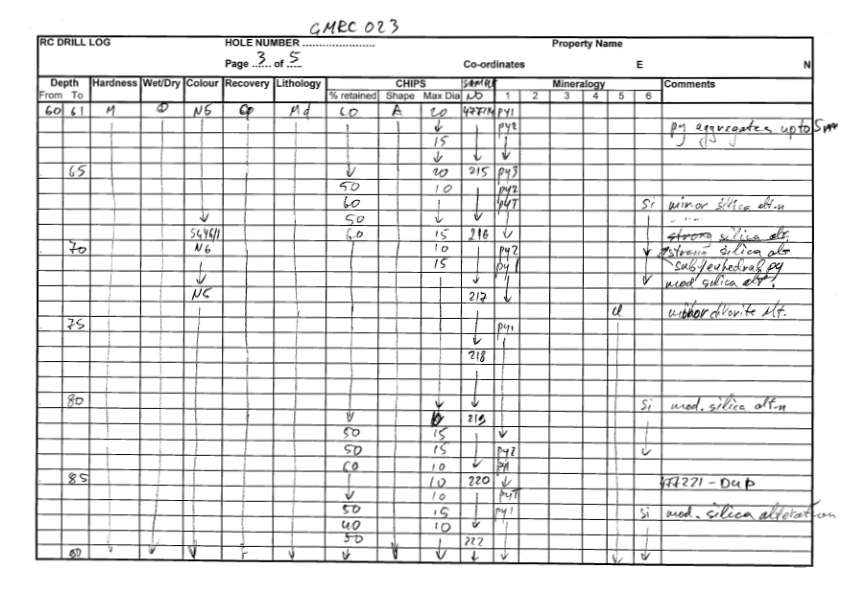 GMRC 023
RC DRILL LOG HOLE NUMBER ........................ Property Name
Page ..3.. of .5.. Co-ordinates E N
Depth Hardness Wet/Dry Colour Recovery Lithology CHIPS SAMPLE Mineralogy Comments
From To % retained Shape Max Dia NO 1 2 3 4 5 6
60 61 M D N5 Md 60 A 20 PY1
py2 py aggregates up to 5mm
15
65 20 215 py3
50 10 py2
60 pyT Si minor silica alt.n
50
5G4/1 60 15 216 strong silica alt.
70 N6 10 py2 silica alt
15 py1 sub/euhedral py
mod silica alt.
N5 217
cl minor chlorite alt.
75 py1
218
80 Si mod. silica alt.n
219
50 15
50 15 py2
60 10
85 10 220 477221 - Dup
10 pyT
50 15 py1 Si mod. silica alteration
40 10
50 222
90